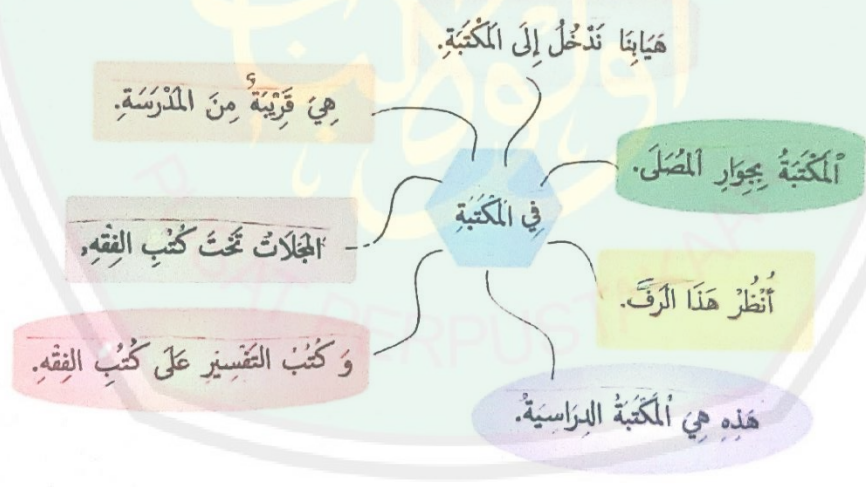 هَيَابِنَا نَدْخُلُ إِلَى المَكْتَبَةِ.
هِيَ قَرِيْبَةٌ مِنَ المَدْرَسَةِ.
اْلمَكْتَبَةُ بِجِوَارِ المُصَلَى.
فِي المَكْتَبَةِ
المَجَلَاتُ تَحْتَ كُتُبِ الفِقْهِ,
أُنْظُرْ هَذَا الرَفَّ.
وَ كُتُبُ التَفْسِيْرِ عَلَى كُتُبِ الفِقْهِ.
هَذِهِ هِيَ اْلمَكْتَبَةُ الدِرَاسِيَةُ.